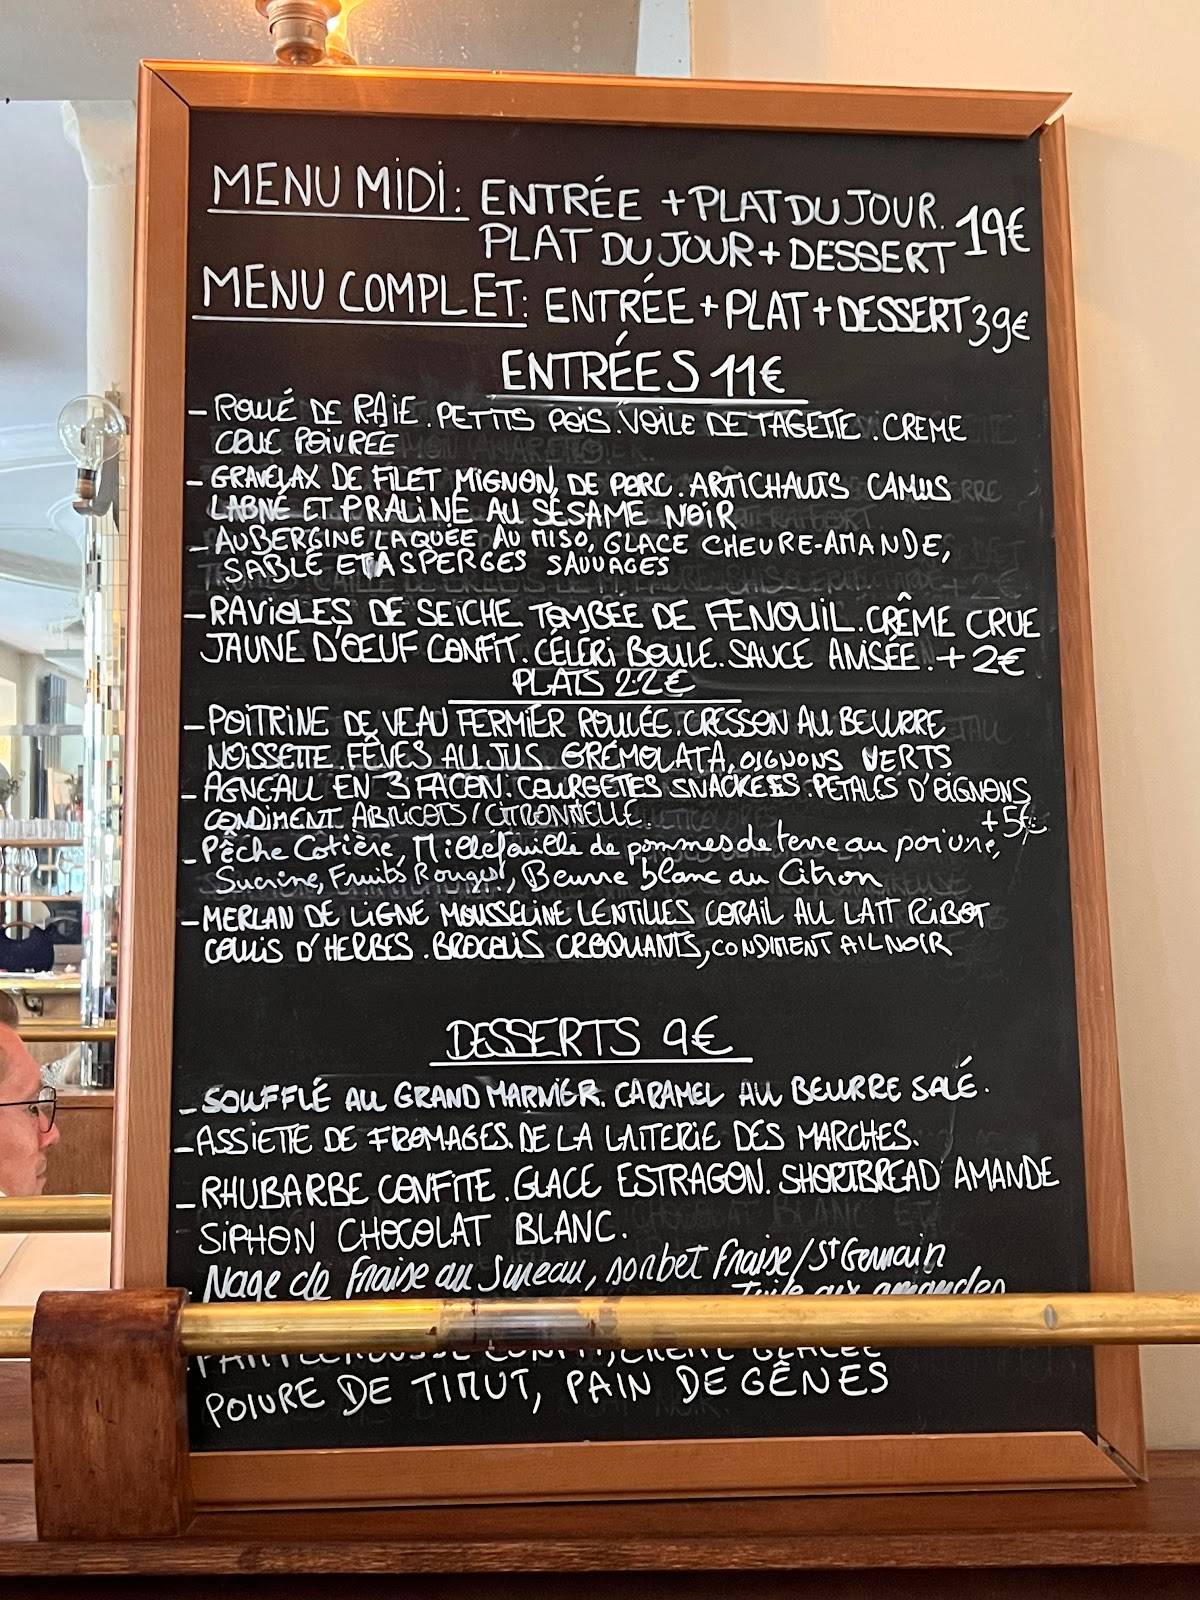 MENU MIDI: ENTRÉE + PLAT DU JOUR.
PLAT DU JOUR + DESSERT 19€
MENU COMPLET: ENTRÉE + PLAT + DESSERT 39€
ENTRÉES 11€
- ROULÉ DE RAIE. PETITS POIS. VOILE DE TAGETTE. CREME
CRUE POIVREE
- GRAVELAX DE FILET MIGNON DE PORC. ARTICHAUTS CAMUS
LABNÉ ET PRALINÉ AU SÉSAME NOIR
- AUBERGINE LAQUÉE AU MISO, GLACE CHEVRE-AMANDE,
SABLÉ ET ASPERGES SAUVAGES
- RAVIOLES DE SEICHE TOMBÉE DE FENOUIL. CRÊME CRUE
JAUNE D'OEUF CONFIT. CÉLERI BOULE. SAUCE ANISÉE. + 2€
PLATS 22€
- POITRINE DE VEAU FERMIER ROULÉE. CRESSON AU BEURRE
NOISETTE. FÊVES AU JUS GREMOLATA, OIGNONS VERTS
- AGNEAU EN 3 FACON. COURGETTES SNACKEES. PETALES D'OIGNONS
CONDIMENT ABRICOTS/CITRONNELLE. +5€
- Pêche Cotière, Millefeuille de pommes de terre au poivre,
Sucrine, Fruits Rouges, Beurre blanc au Citron
- MERLAN DE LIGNE MOUSSELINE LENTILLES CORAIL AU LAIT RIBOT
COULIS D'HERBES. BROCOLIS CROQUANTS, CONDIMENT AIL NOIR
DESSERTS 9€
- SOUFFLÉ AU GRAND MARNIER. CARAMEL AU BEURRE SALÉ.
- ASSIETTE DE FROMAGES. DE LA LAITERIE DES MARCHES.
- RHUBARBE CONFITE. GLACE ESTRAGON. SHORTBREAD AMANDE
SIPHON CHOCOLAT BLANC.
Nage de Fraise au Sureau, sorbet Fraise/St Germain
Tuile aux amandes
POIVRE DE TIMUT, PAIN DE GÊNES